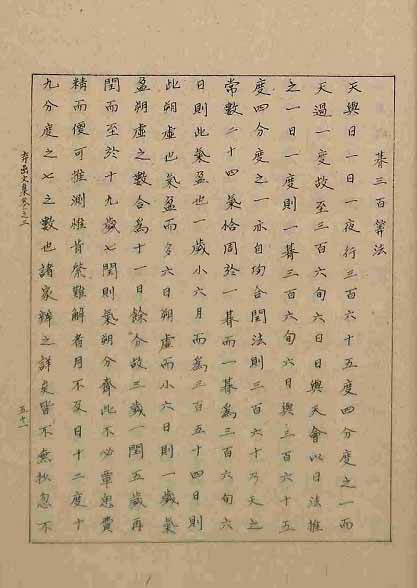 朞三百筭法
天與日一日一夜行三百六十五度四分度之一而
天過一度故至三百六旬六日日與天會以日法推
之一日一度則一朞三百六旬六日與三百六十五
度四分度之一亦自均合閏法則三百六十乃天之
常數二十四氣恰周於一朞而一朞爲三百六旬六
日則此氣盈也一歲小六月而爲三百五十四日則
此朔虛也氣盈而多六日朔虛而小六日則一歲氣
盈朔虛之數合爲十一日餘合故三歲一閏五歲再
閏而至於十九歲七閏則氣朔分齊此不必覃思費
精而便可推測惟肯綮難解者月不及日十二度十
九分度之七之數也諸家辨之詳矣皆不無抄忽不
文集卷之三
五十一